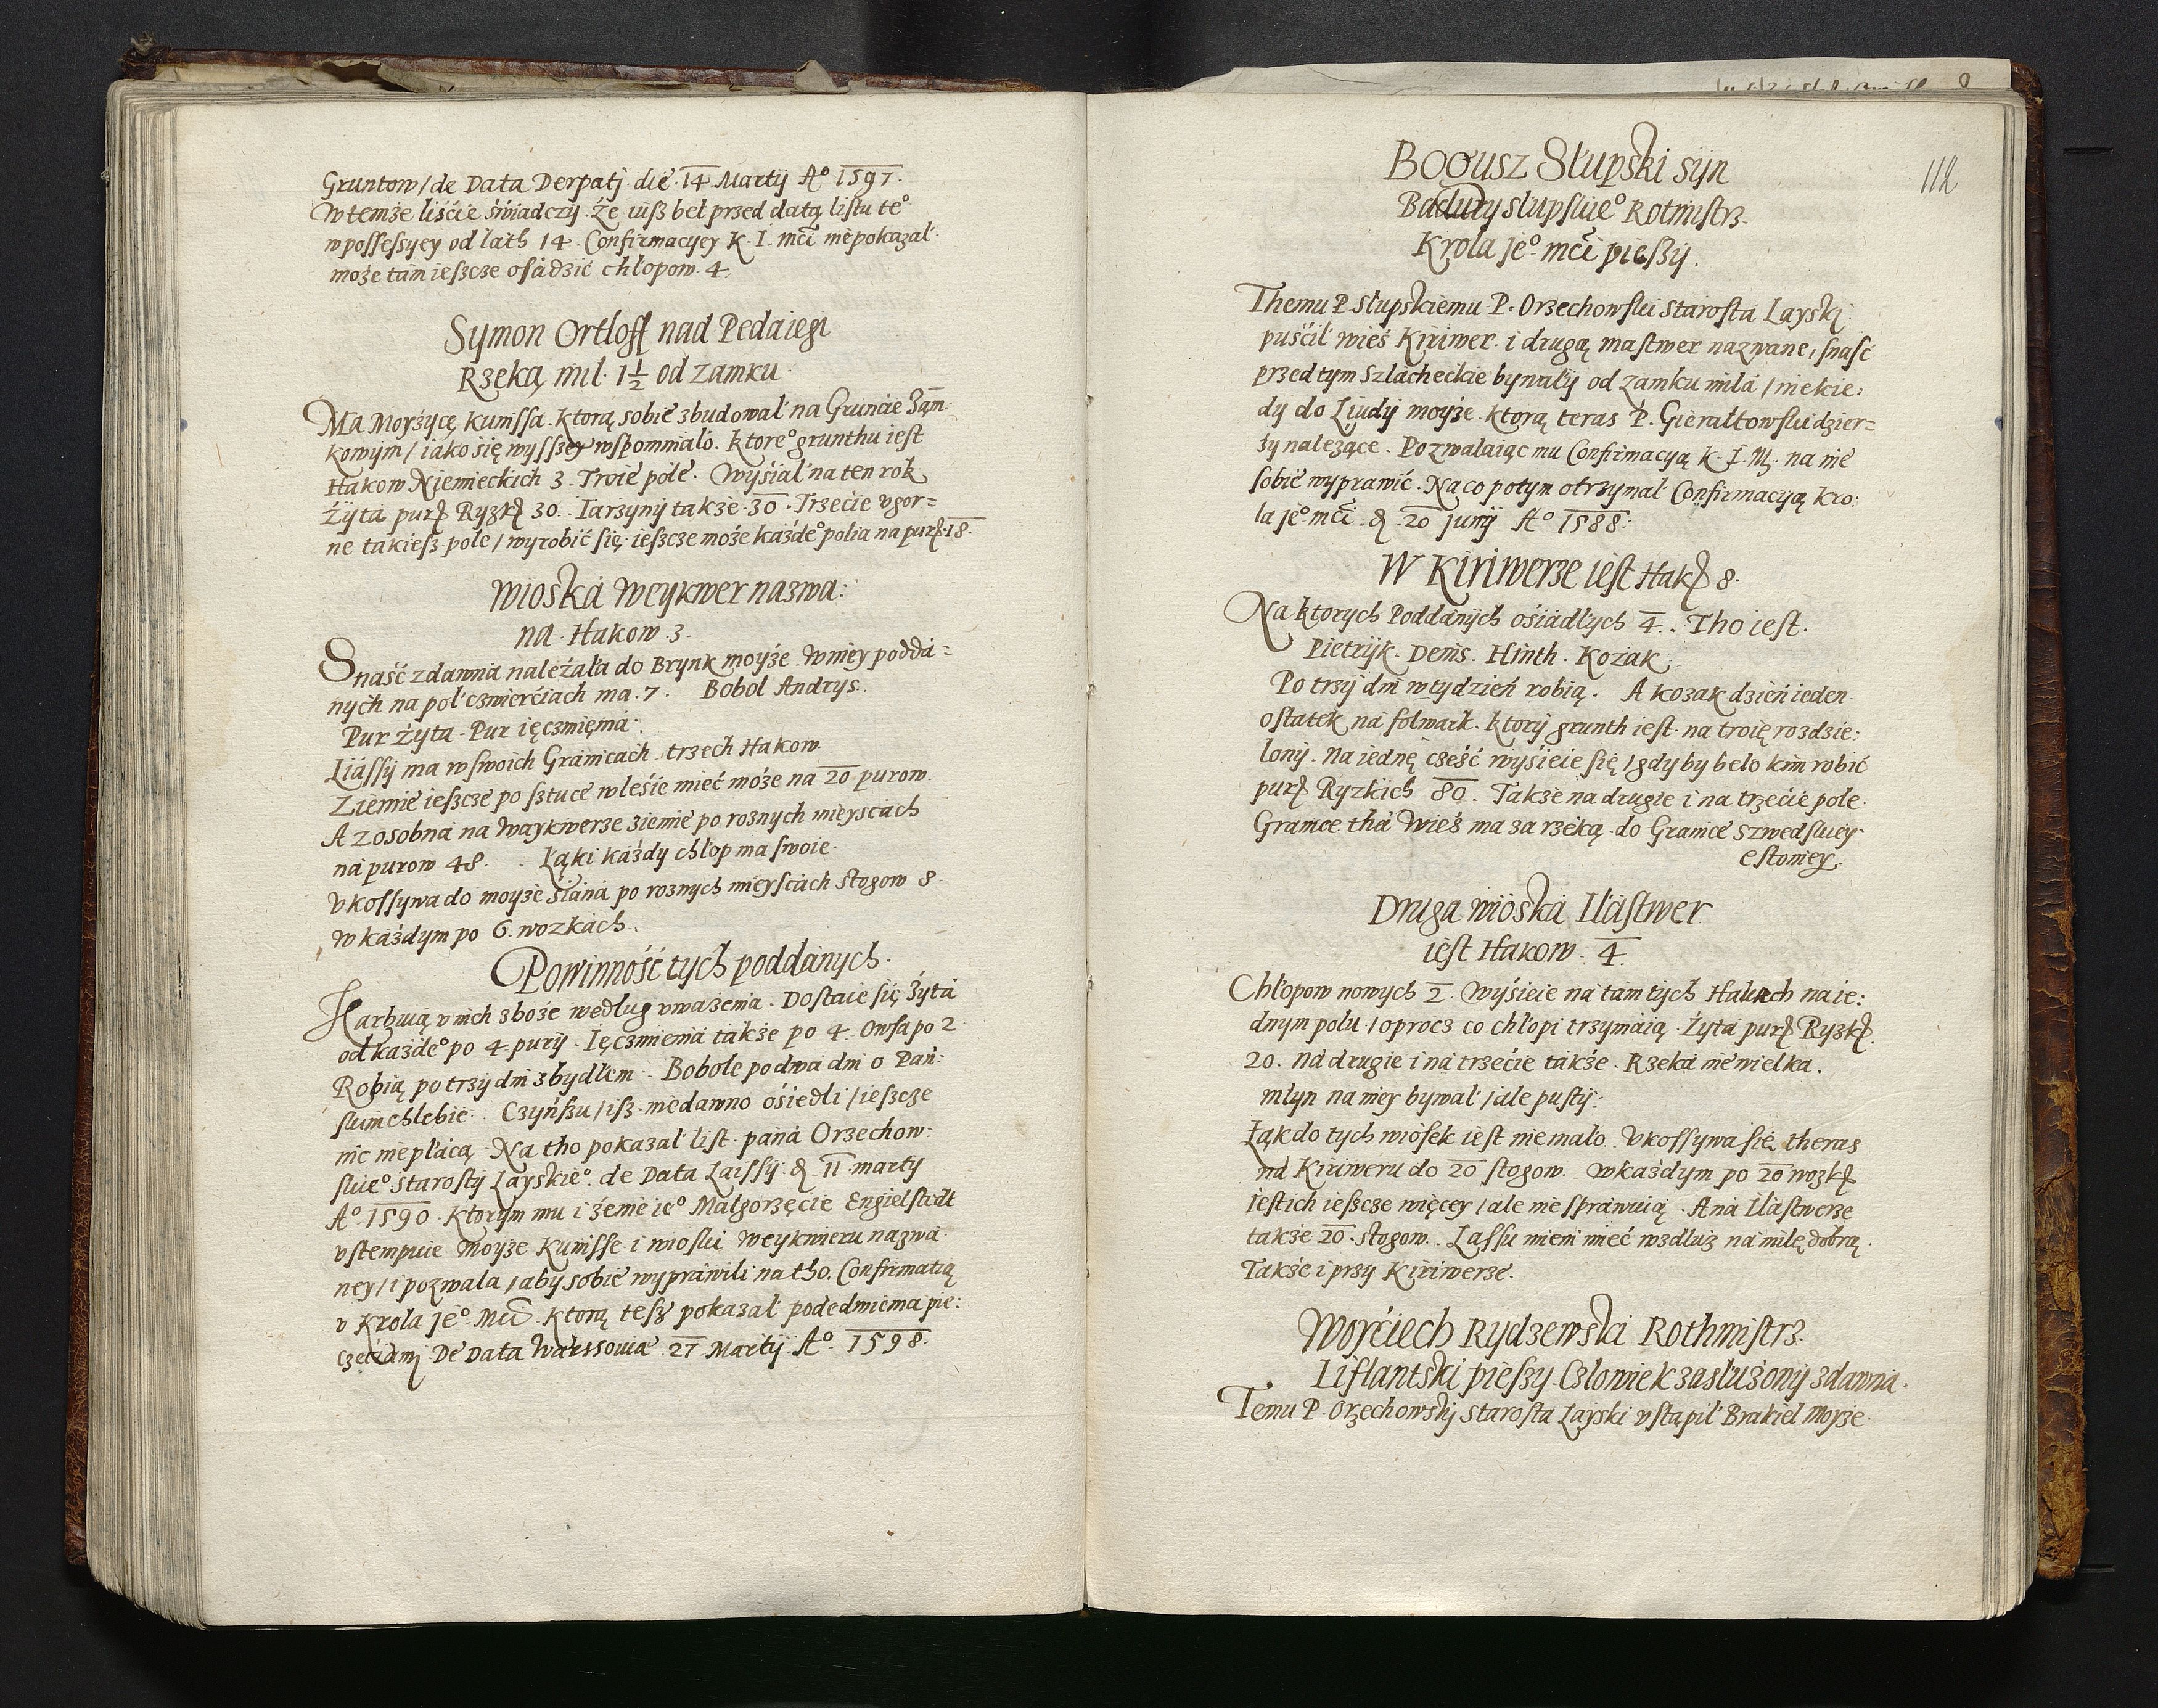 Gruntow / de Data Derpatj die 14 Martij Aº 1597.
W temże liście świadczy. Że iusz beł przed datą listu teº
w possessyey od lath 14. Confirmacyey K. I. Mći nie pokazał.
może tam ieszcze osadzić chłopow. 4.
Symon Ortloff nad Pedaiegi
Rzeką mil. 1 1/2 od zamku.
Ma Moyżycę Kunissa. ktorą sobie zbudował na Gruncie Zam:
kowym / iako się wysszey wspomniało. ktoreº grunthu iest
Hakow Niemieckich 3. Troie pole. Wysiał na ten rok
Żyta pur. Ryzk. 30. Iarzyny także 30. Trzecie vgor=
ne takiesz pole / wyrobić się ieszcze może każdeº polia na pur. 18.
Wioska Weykwer nazwa:
na. Hakow. 3.
Snaść zdawna należała do Brynk moyże. W niey podda=
nych na poł czwierciach ma. 7. Bobol Andrys.
Pur żyta. Pur ięczmięnia:
Liassy ma w swoich Granicach trzech Hakow.
Ziemie ieszcze po sztuce w lesie mieć może na 20 purow.
A zosobna na Waykwerze ziemie po roznych mieyscach
na purow 48. Łąki każdy chłop ma swoie.
Vkossywa do moyże siana po roznych mieyscach stogow 8.
W każdym po 6. wozkach.
Powinność tych poddanych.
Karbuią v nich zboże według vważenia. Dostaie się Żyta
od każdeº po 4 pury. Ięczmienia także po 4. Owsa po 2
Robią po trzy dni z bydłem. Bobole po dwa dni o Pań:
skim chlebie. Czynszu / isz niedawno osiedli / ieszcze
nic nie płacą. Na tho pokazał list pana Orzechow:
skieº Starosty Layskieº. de Data Laissy. 11 martij
Aº. 1590. Ktorym mu i żenie ieº Malgorzęcie Engielstedt
vstempuie Moyże Kunisse i wioski Weykwieru nazwa:
ney / i pozwala / aby sobie wyprawili na tho. Confirmatią
v Krola Jeº Mći. Ktorą tesz pokazał pode dwiema pie:
częciami De Data Warssouiæ 27 Martij Aº. 1598.
112
Bogusz Słupski syn
Słupskieº Rotmistrz.
Krola Jeº Mći pieszy.
Themu P. Słupskiemu P. Orzechowski Starosta Layski
puścił wieś Kiriwer. i drugą Ilastwer nazwane, snaść
przed tym Szlacheckie bywały od zamku mila / niekie:
dy do Liudy moyże. ktorą teras P. Gierałtowski dzier=
ży należące. Pozwalaiąc mu Confirmacyą K. I. M. na nie
sobie wyprawić. Na co potym otrzymał Confirmacyą kro:
la Jeº Mći. 20 Junij Aº 1588.
W Kiriwerze iest Hak. 8.
Na ktorych Poddanych osiadłych 4. Tho iest.
Pietryk. Denis. Hinth. Kozak.
Po trzy dni w tydzień robią. A kozak dzień ieden.
ostatek na folwark. ktory grunth iest na troię rozdzie:
lony. na iednę cześć wysieie się / gdy by beło kim robić
pur. Ryzkich 80. Także na drugie i na trzecie pole.
Granice tha Wieś ma za rzeką do Granice Szwedskiey
estoniey.
Druga wioska Ilastwer
iest Hakow. 4.
Chłopow nowych 2. Wysieie na tamtych Hakach na ie:
dnym polu / oprocz co chłopi trzymaią. Żyta pur. Ryzk.
20. Na drugie i na trzecie także. Rzeka niewielka.
Młyn na niey bywał / ale pusty:
Łąk do tych wiosek iest niemało. Vkossywa się theras
na Kiriweru do 20 stogow. W każdym po 20 wozk.
iest ich ieszcze więcey / ale nie sprawuią. A na Ilastwerze
także 20. stogow. Lassu mieni mieć wzdłuż na milę dobrą.
Także i przy Kiriwerze.
Woyciech Rydzewski Rothmistrz.
Liflantski pieszy. Człowiek zasłużony zdawna.
Temu P. Orzechowskj Starosta Layski vstąpił Brakiel Moyże